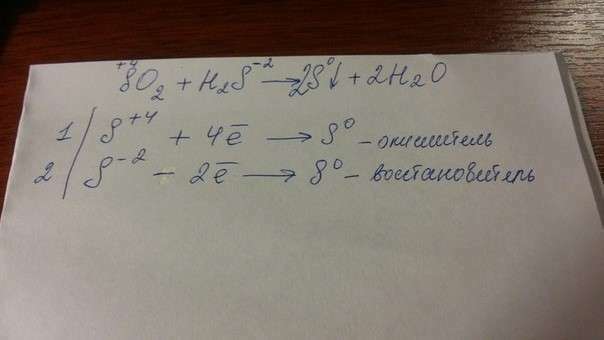 S⁺⁴O₂ + H₂S⁻² → 2S⁰↓ + 2H₂O
1 | S⁺⁴ + 4ē → S⁰ – окислитель
2 | S⁻² – 2ē → S⁰ – восстановитель